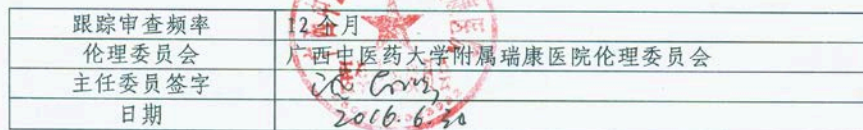 跟踪审查频率 12 个月
伦理委员会 广西中医药大学附属瑞康医院伦理委员会
主任委员签字
日期 2016.6.30